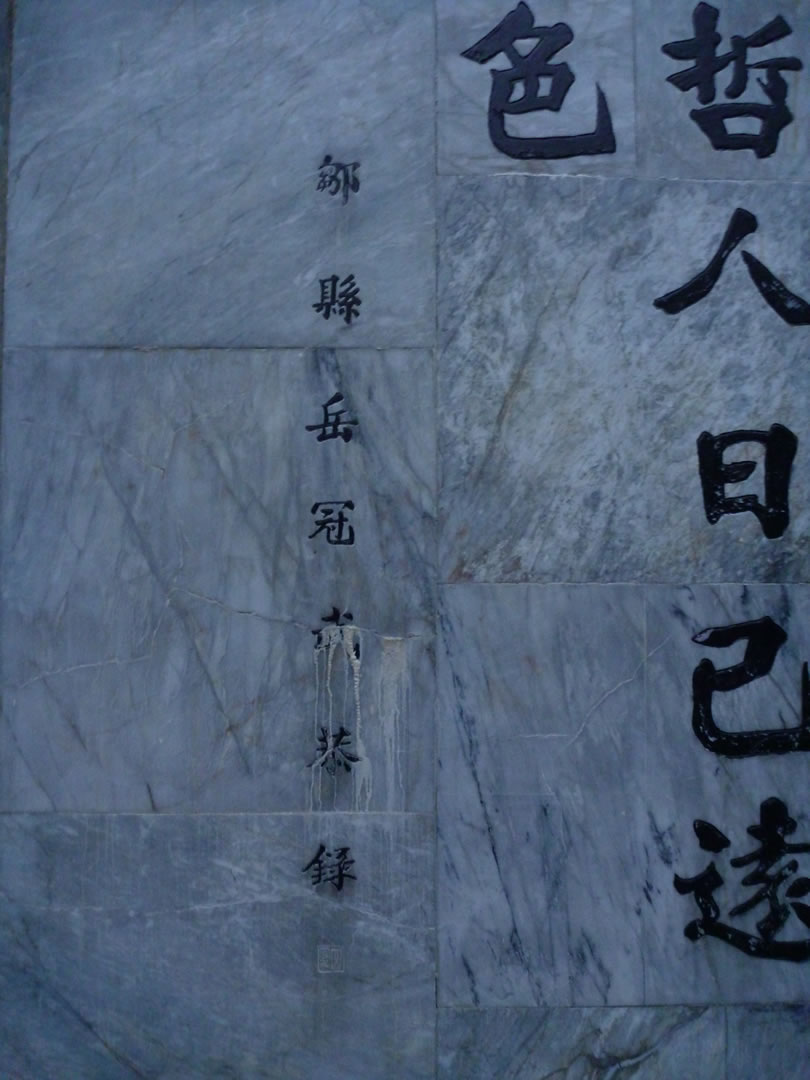 哲人日已遠
色
鄒縣岳冠尚恭錄